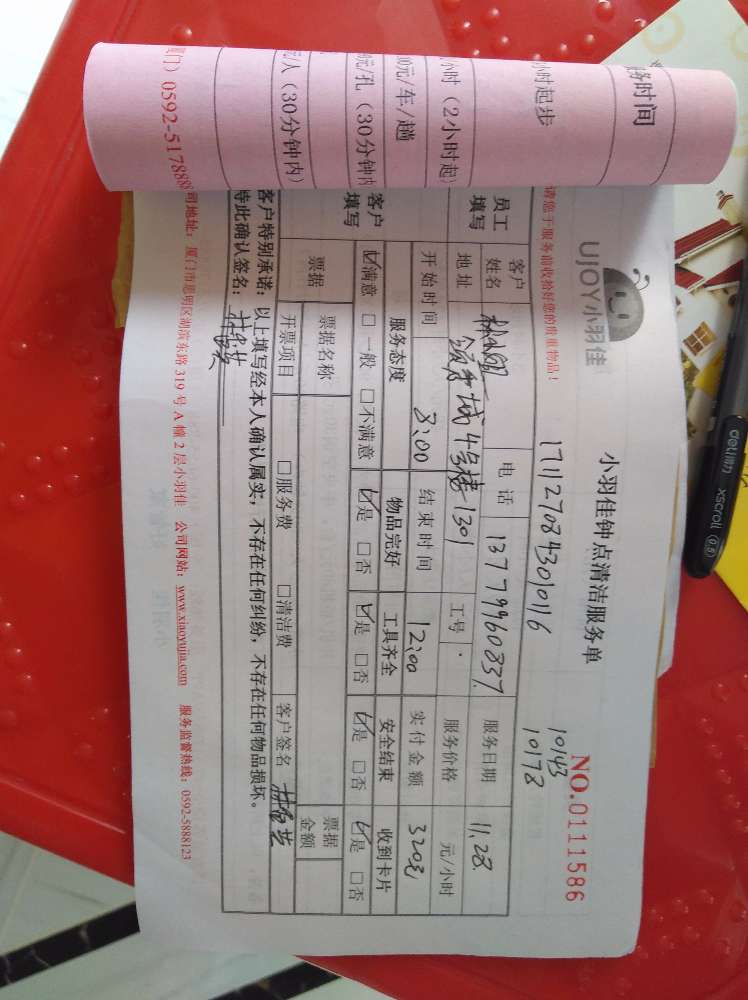 务时间
小时起步
小时（2小时起）
00元/车/趟
元/孔（30分钟内
元/人（30分钟内）
厦门）0592-5178888
UJOY小羽佳
小羽佳钟点清洁服务单
NO.0111586
请您于服务前收拾好您的贵重物品！
17112784301016
10143
10178
员工填写
客户姓名
电话
13779960837
服务日期
11.28
地址
4号楼1301
工号
服务价格
元/小时
开始时间
8:00
结束时间
12:00
实付金额
320元
客户填写
服务态度
物品完好
工具齐全
安全结束
收到卡片
☑满意 □一般 □不满意
☑是 □否
☑是 □否
☑是 □否
☑是 □否
票据
票据名称
票据金额
开票项目
□服务费
□清洁费
客户签名
客户特别承诺：以上填写经本人确认属实，不存在任何纠纷，不存在任何物品损坏。
特此确认签名：
司地址：厦门市思明区湖滨东路 319 号 A 幢 2 层小羽佳 公司网站：www.xiaoyujia.com 服务监督热线：0592-5888123
deli得力
xscroll
0.5